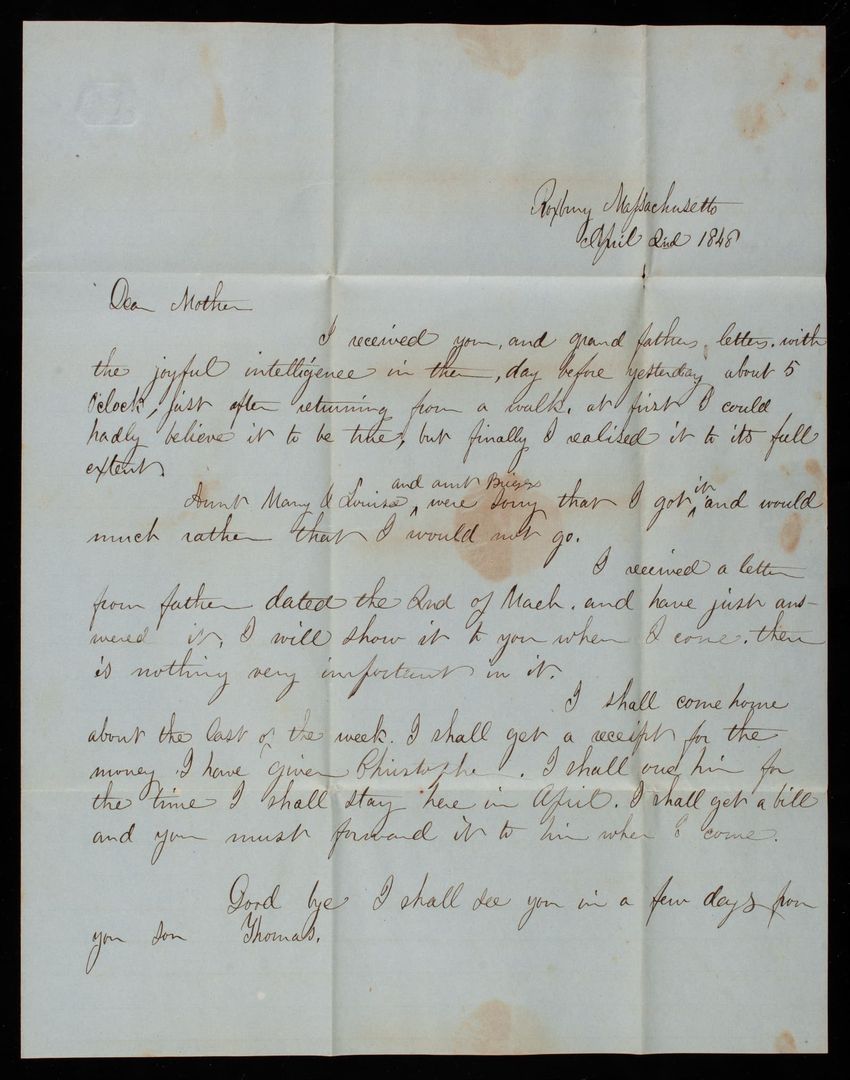 Roxbury Massachusetts
April 2nd 1848
Dear Mother
I received your, and grand fathers letters. with
the joyful intelligence in them, day before yesterday about 5
O'clock, just after returning from a walk. at first I could
hadly believe it to be true, but finally I realised it to its full
extent.
Aunt Mary & Louisa and aunt Briggs were sorry that I got it and would
much rather that I would not go.
I received a letter
from father dated the 2nd of Mach. and have just ans-
wered it, I will show it to you when I come. there
is nothing very important in it.
I shall come home
about the last of the week. I shall get a receipt for the
money I have given Christopher. I shall owe him for
the time I shall stay here in April. I shall get a bill
and you must forward it to him when I come.
Good bye I shall see you in a few days from
you son Thomas.